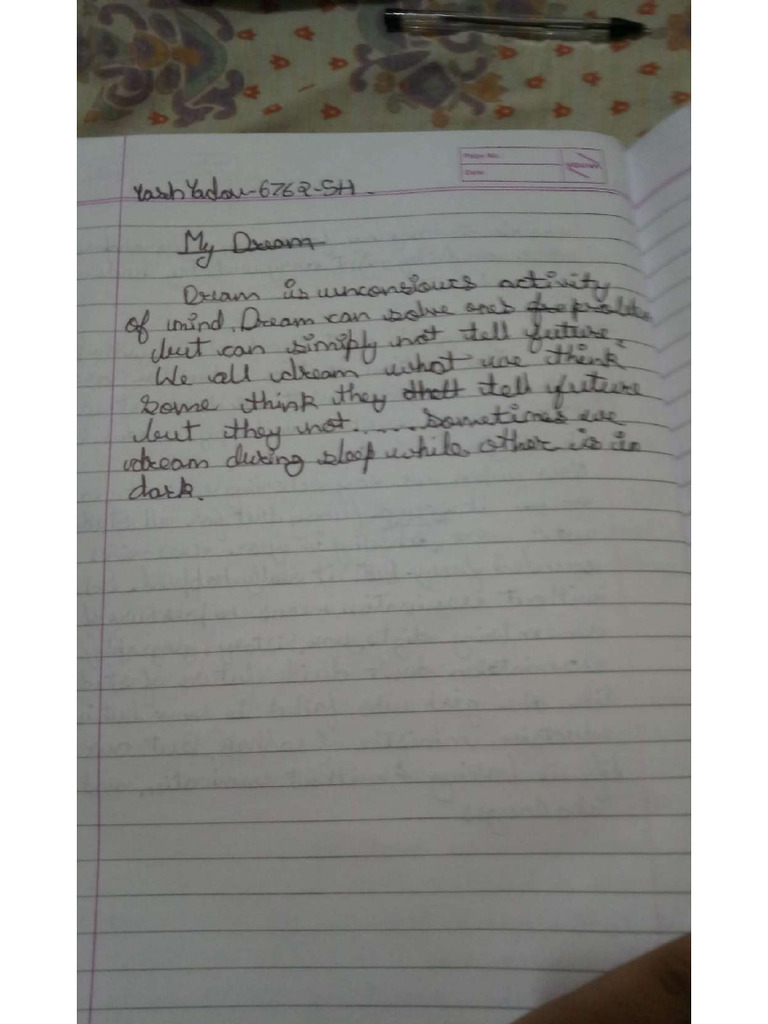 Yash Yadav-6762-SH.
Page No.
Date
youva
My Dream
Dream is unconsious activity
of mind. Dream can solve ones problem
but can simiply not tell future.
We all dream what we think
Some think they tell future
but they not...... Sometimes we
dream during sleep while other is in
dark.